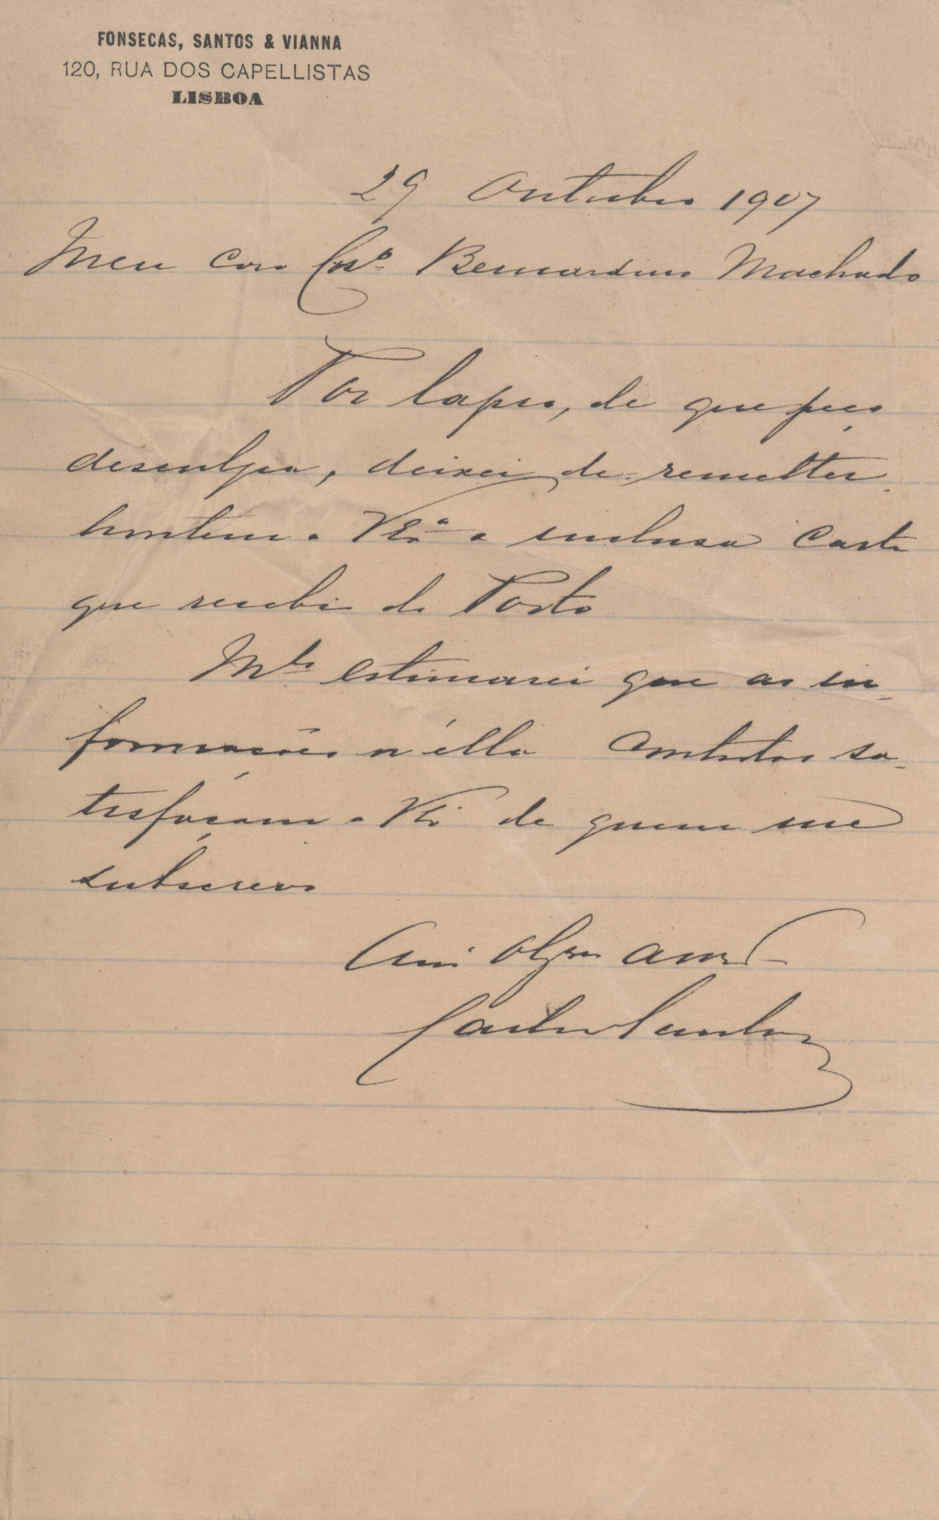 FONSECAS, SANTOS & VIANNA
120, RUA DOS CAPELLISTAS
LISBOA
29 Outubro 1907
Meu caro Cons.º Bernardino Machado
Por lapso, de que peço
desculpa, deixei de remetter
hontem a V. Ex.ª a inclusa carta
que recebi do Porto
M.to estimarei que as in-
formações n'ella contidas sa-
tisfaçam a V. Ex.ª de quem me
subscrevo